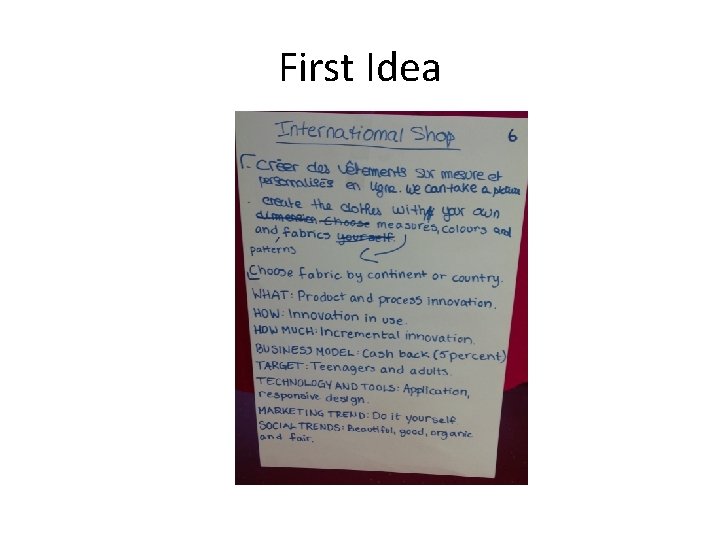 First Idea
International Shop 6
- Créer des vêtements sur mesure et
personnalisés en ligne. We can take a picture
. create the clothes with your own
dimension. Choose measures, colours and
and fabrics yourself.
patterns
Choose fabric by continent or country.
WHAT: Product and process innovation.
HOW: Innovation in use.
HOW MUCH: Incremental innovation.
BUSINESS MODEL: Cash back (5 percent)
TARGET: Teenagers and adults.
TECHNOLOGY AND TOOLS: Application,
responsive design.
MARKETING TREND: Do it yourself.
SOCIAL TRENDS: Beautiful, good, organic
and fair.